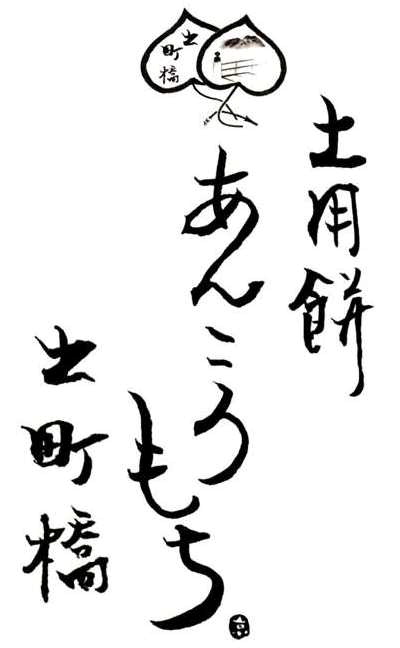 出町橋
土用餅
あんころもち
出町橋